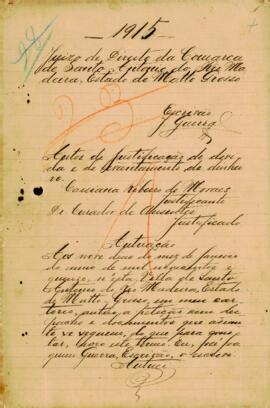 — 1915 —
Juizo de Direito da Comarca
de Santo Antonio do Rio Ma-
deira, Estado de Matto Grosso
Escrivão
Guerra
Autos de justificação de divi-
da e de levantamento de dinhei-
ro
Ribeiro de Moraes
Justificante
Dr Curador de Ausentes
Justificado
Autuação
Aos nove dias do mez de Janeiro
do anno de mil novecentos e
quinze, n'esta Villa de Santo
Antonio do Rio Madeira, Estado
de Matto Grosso, em meu car-
torio, autúo a petição com des-
pacho e documentos que adian-
te se seguem; do que para cons-
tar, faço este termo. Eu,
Guerra, Escrivão, o escrevi